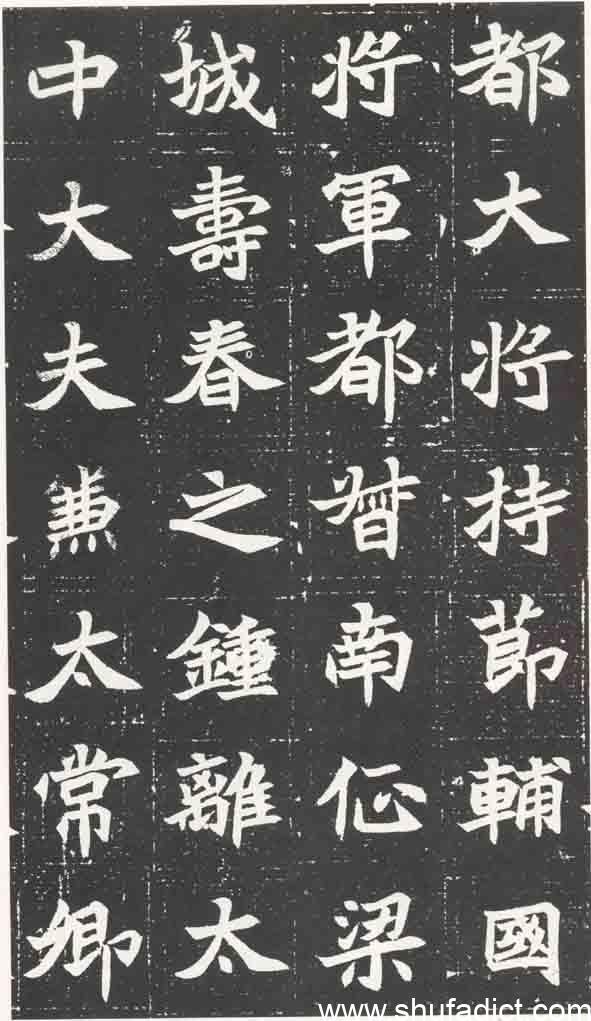 都大将持莭輔國
将軍都督南佂梁
城壽春之鍾離太
中大夫兼太常卿
www.shufadict.com